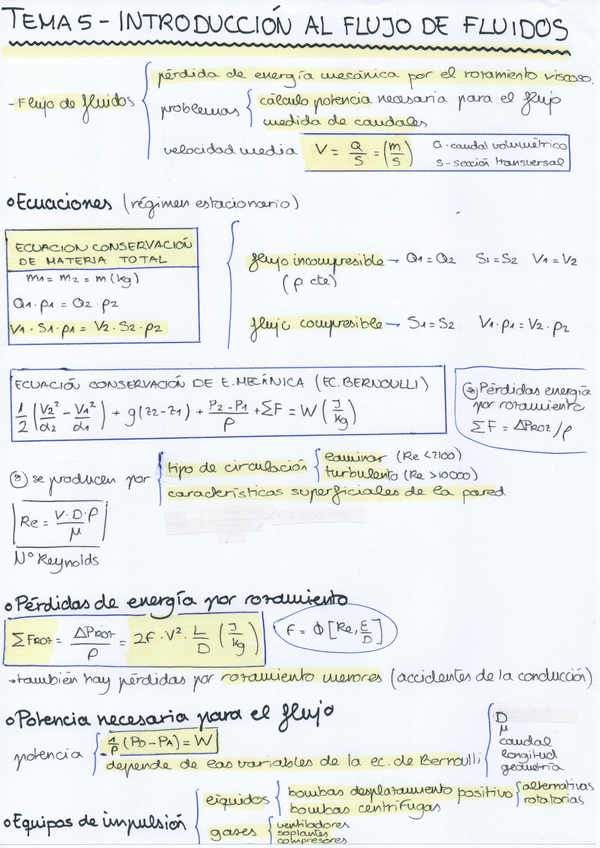 TEMA 5 - INTRODUCCIÓN AL FLUJO DE FLUIDOS
- Flujo de fluidos
pérdida de energía mecánica por el rozamiento viscoso.
problemas
cálculo potencia necesaria para el flujo
medida de caudales
velocidad media V = Q/S = (m/s)
Q - caudal volumétrico
S - sección transversal
Ecuaciones (régimen estacionario)
ECUACION CONSERVACIÓN
DE MATERIA TOTAL
m1 = m2 = m (kg)
Q1 · ρ1 = Q2 · ρ2
V1 · S1 · ρ1 = V2 · S2 · ρ2
flujo incompresible → Q1 = Q2 S1 = S2 V1 = V2
(ρ cte)
flujo compresible → S1 = S2 V1 · ρ1 = V2 · ρ2
ECUACIÓN CONSERVACIÓN DE E. MECÁNICA (EC. BERNOULLI)
1/2 (V2²/α2 − V1²/α1) + g(z2 − z1) + (P2 − P1)/ρ + ΣF = W (J/kg)
Pérdidas energía
por rozamiento
ΣF = ΔPROZ / ρ
se producen por
tipo de circulación
laminar (Re < 2100)
turbulento (Re > 10000)
características superficiales de la pared
Re = V · D · ρ / μ
Nº Reynolds
Pérdidas de energía por rozamiento
ΣFROZ = ΔPROZ/ρ = 2f · V² · L/D (J/kg)
f = Φ [Re, ε/D]
→ también hay pérdidas por rozamiento menores (accidentes de la conducción)
Potencia necesaria para el flujo
potencia
1/ρ (PD − PA) = W
depende de las variables de la ec. de Bernoulli
D
μ
caudal
longitud
geometría
Equipos de impulsión
líquidos
bombas desplazamiento positivo
alternativas
rotatorias
bombas centrífugas
gases
ventiladores
soplantes
compresores